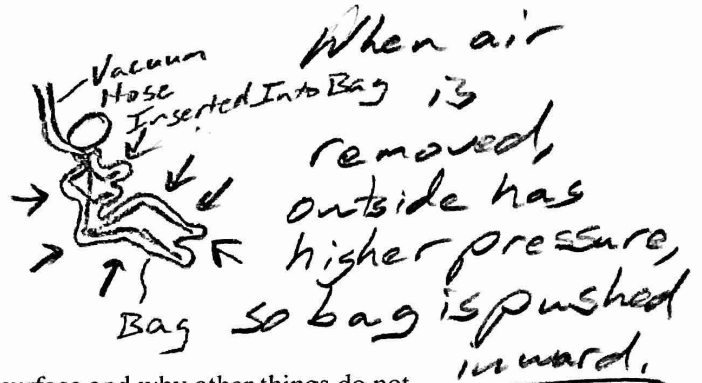 Vacuum
Hose
Inserted Into Bag
When air
is
removed,
outside has
higher pressure,
so bag is pushed
inward.
Bag
surface and why other things do not